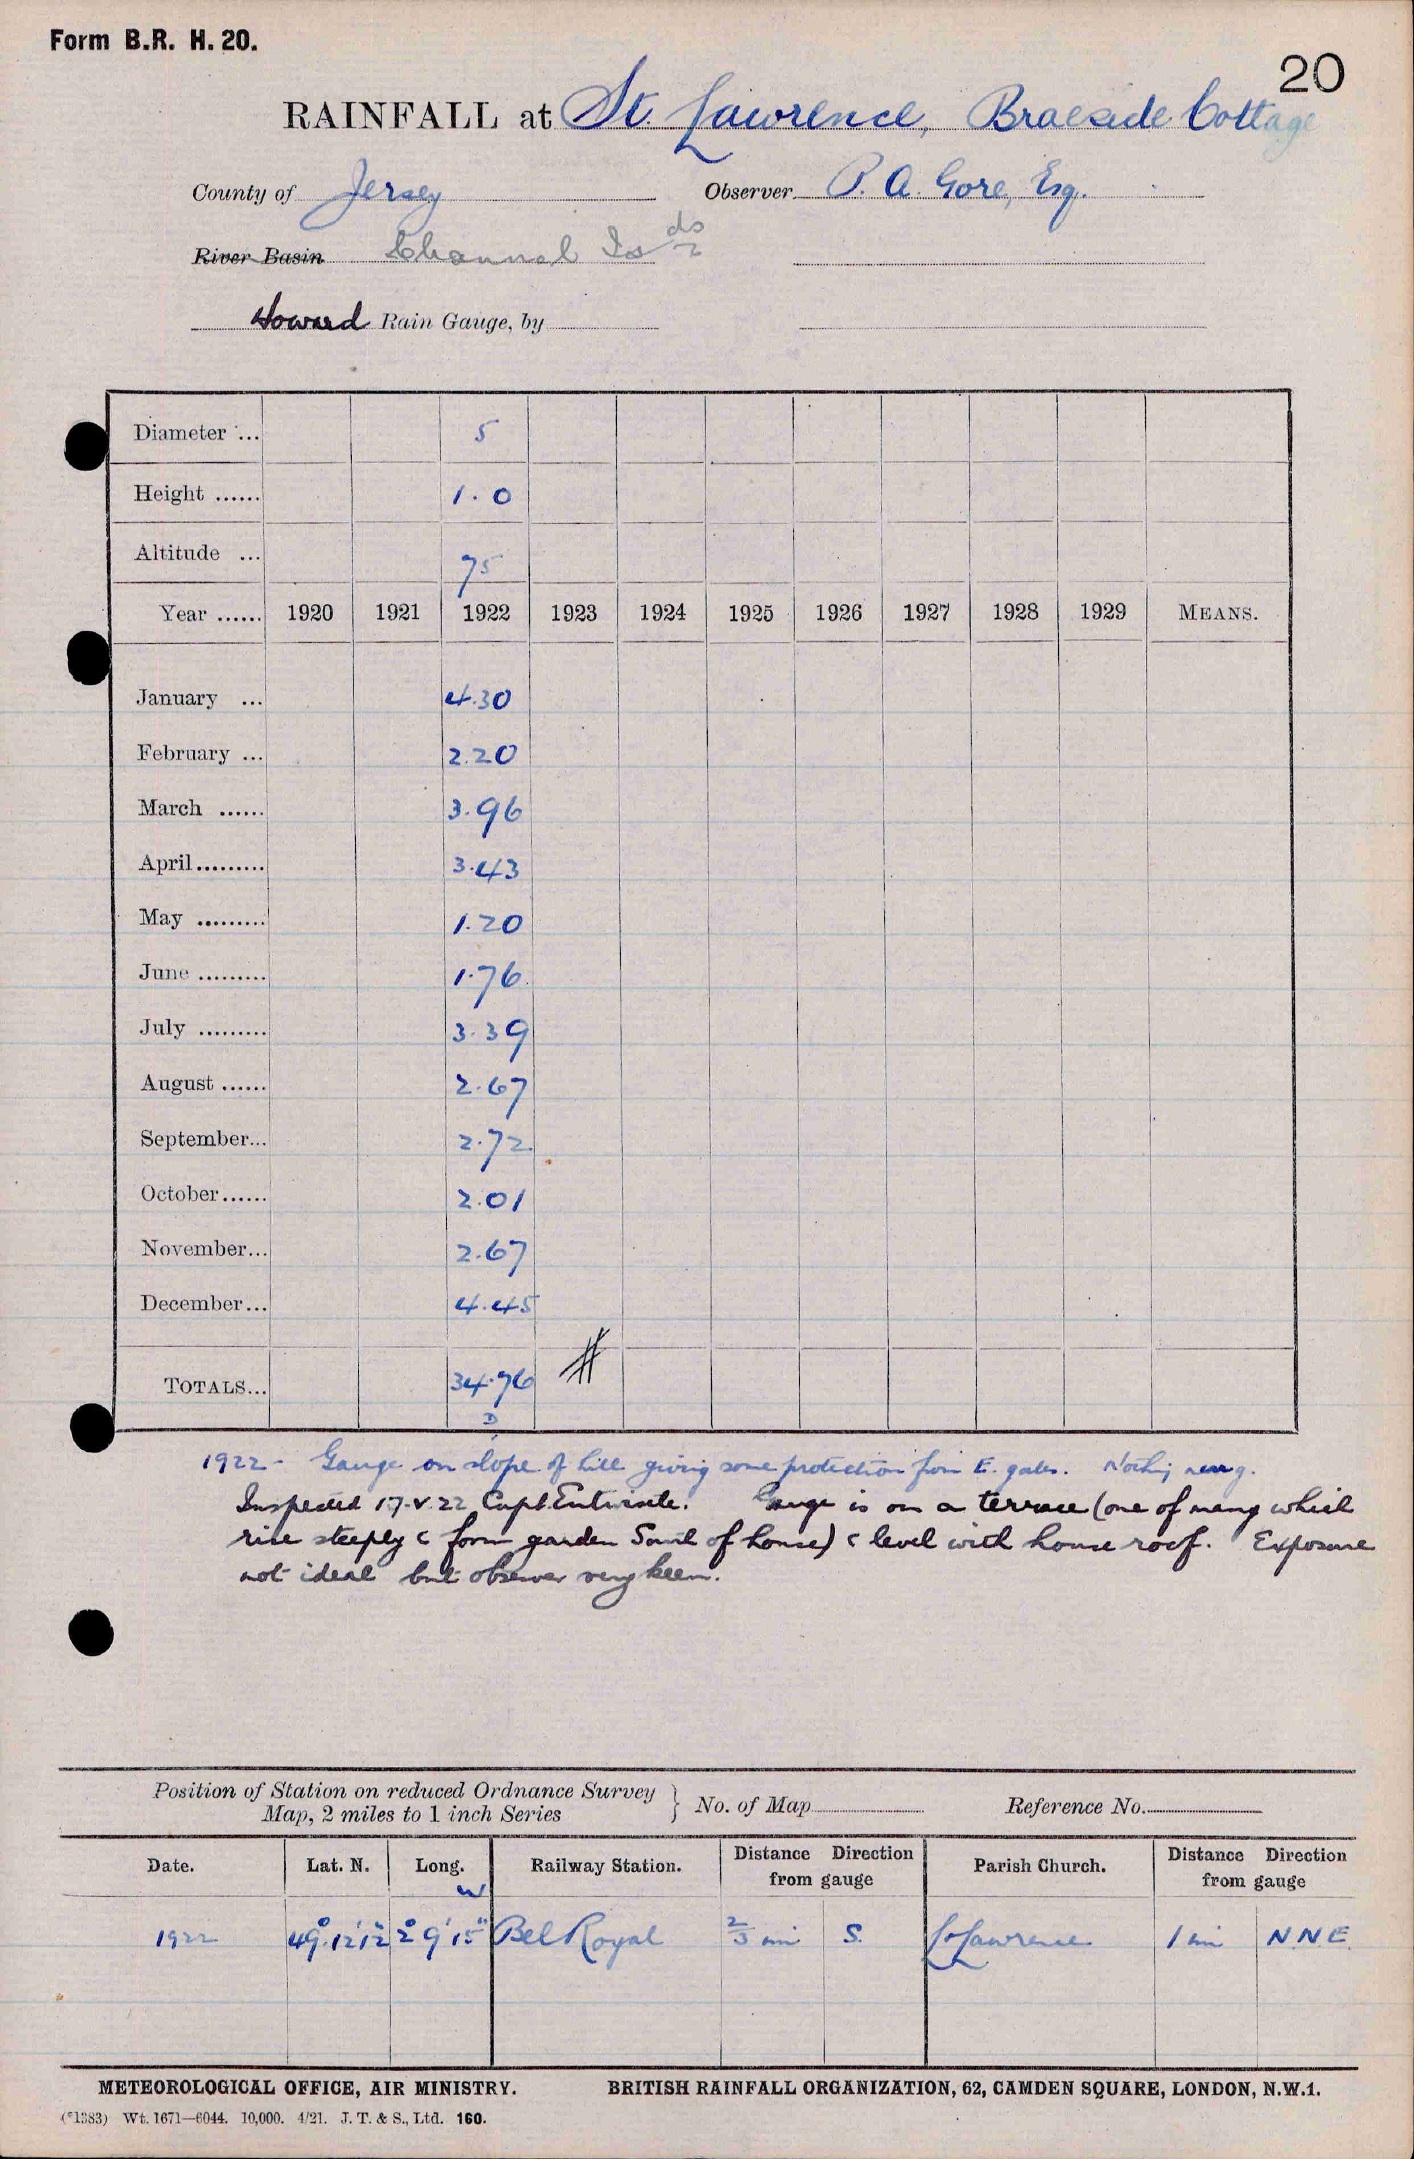 Form B.R. H. 20.
20
RAINFALL at St. Lawrence, Braeside Cottage
County of Jersey Observer P. A. Gore, Esq.
River Basin Channel Is ds
Howard Rain Gauge, by
Diameter ... 5
Height ...... 1.0
Altitude ... 75
Year ...... 1920 1921 1922 1923 1924 1925 1926 1927 1928 1929 MEANS.
January ... 4.30
February ... 2.20
March ...... 3.96
April ......... 3.43
May ......... 1.20
June ......... 1.76
July ......... 3.39
August ...... 2.67
September... 2.72
October...... 2.01
November... 2.67
December... 4.45
TOTALS... 34.76
D
1922 - Gauge on slope of hill giving some protection from E. gales. Nothing near g.
Inspected 17.V.22 Capt. Entwistle. Gauge is on a terrace (one of many which
rise steeply & form garden South of house) & level with house roof. Exposure
not ideal but observer very keen.
Position of Station on reduced Ordnance Survey
Map, 2 miles to 1 inch Series } No. of Map Reference No.
Date. Lat. N. Long. W Railway Station. Distance Direction from gauge Parish Church. Distance Direction from gauge
1922 49° 12' 12" 2° 9' 15" Bel Royal 2/3 mi S. St Lawrence 1 mi N.N.E.
METEOROLOGICAL OFFICE, AIR MINISTRY. BRITISH RAINFALL ORGANIZATION, 62, CAMDEN SQUARE, LONDON, N.W.1.
(*1383) Wt. 1671—6044. 10,000. 4/21. J. T. & S., Ltd. 160.